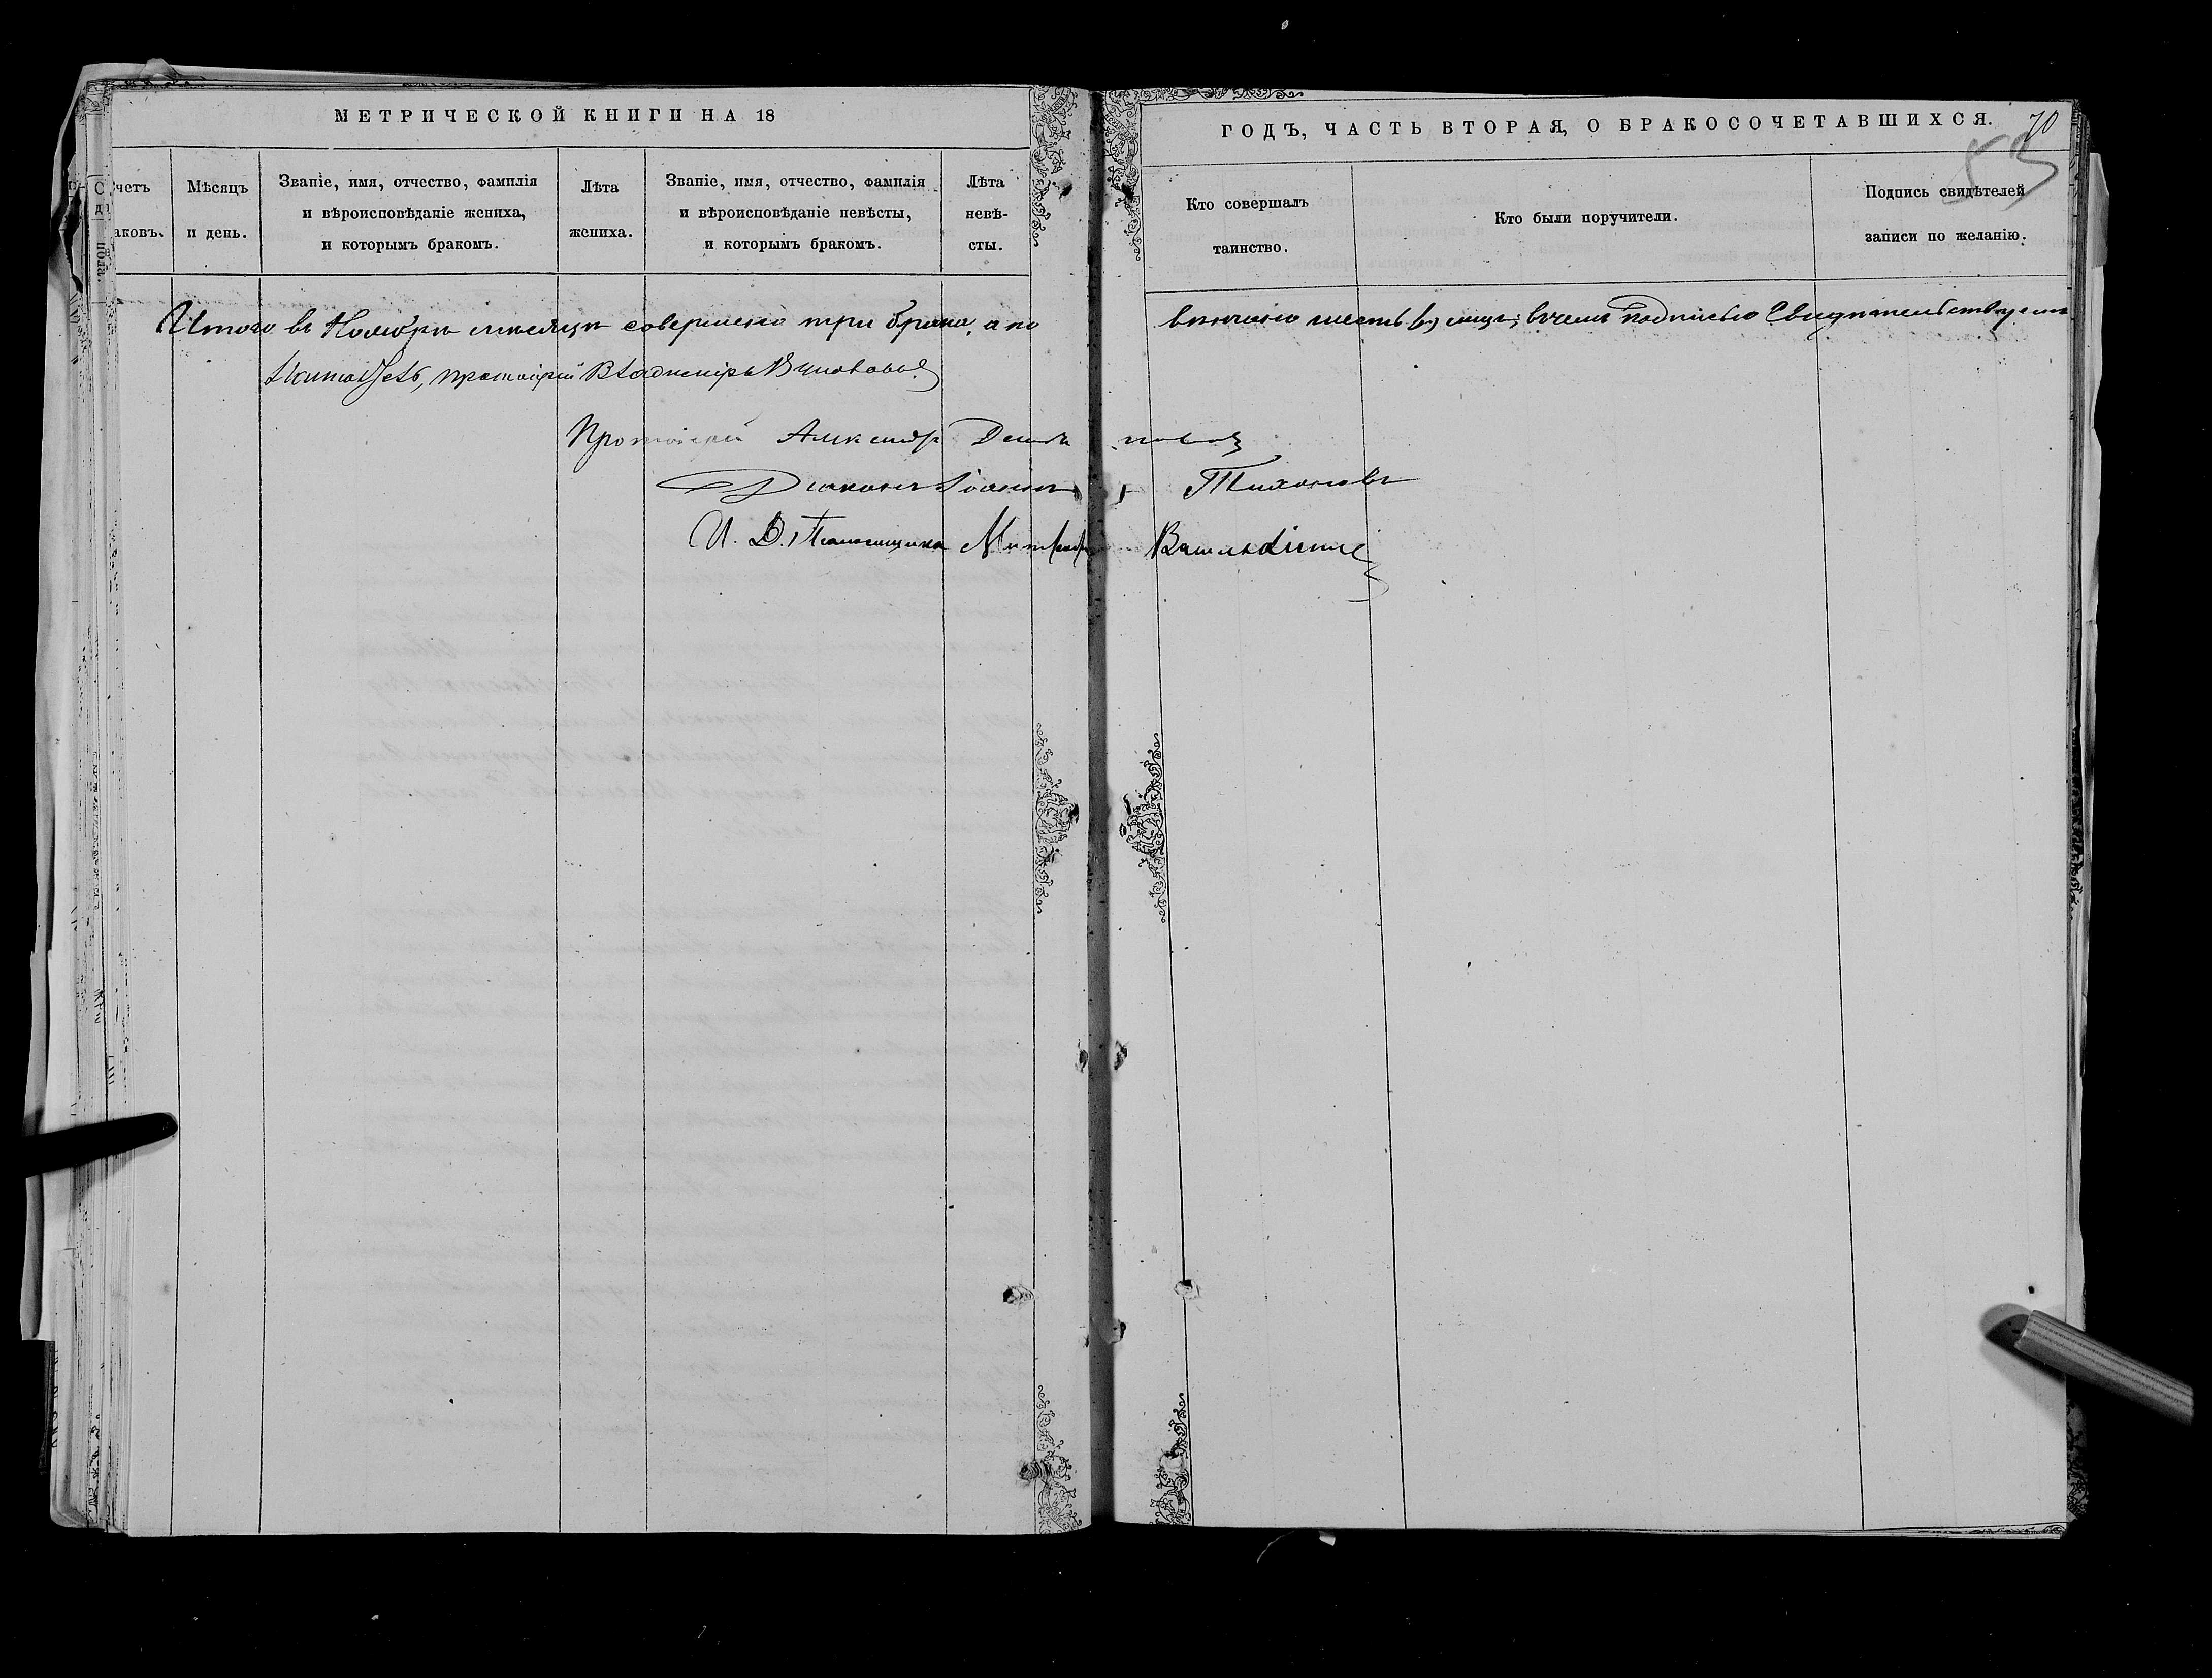 МЕТРИЧЕСКОЙ КНИГИ НА 18
ГОДЪ, ЧАСТЬ ВТОРАЯ, О БРАКОСОЧЕТАВШИХСЯ.
70
53
Мѣсяцъ и день.
Званіе, имя, отчество, фамилія
и вѣроисповѣданіе жениха,
и которымъ бракомъ.
Лѣта
жениха.
Званіе, имя, отчество, фамилія
и вѣроисповѣданіе невѣсты,
и которымъ бракомъ.
Лѣта
невѣ-
сты.
Кто совершалъ
таинство.
Кто были поручители.
Подпись свидѣтелей
записи по желанію.
Итого въ Ноябрѣ мѣсяцѣ совершено три брака, а по
вѣнчано шесть лицъ; въ чемъ подписью Свидѣтельствуемъ
протоіерей Владиміръ
Протоіерей Александръ
Діаконъ Іоаннъ Тихоновъ
И. Д. Псаломщика